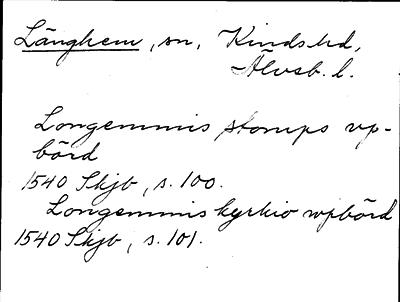 Länghem, sn, Kinds hd,
Älvsb. l.
Longemmis stomps vp-
börd
1540 Skjb, s. 100.
Longemmis kyrkio wpbörd
1540 Skjb, s. 101.